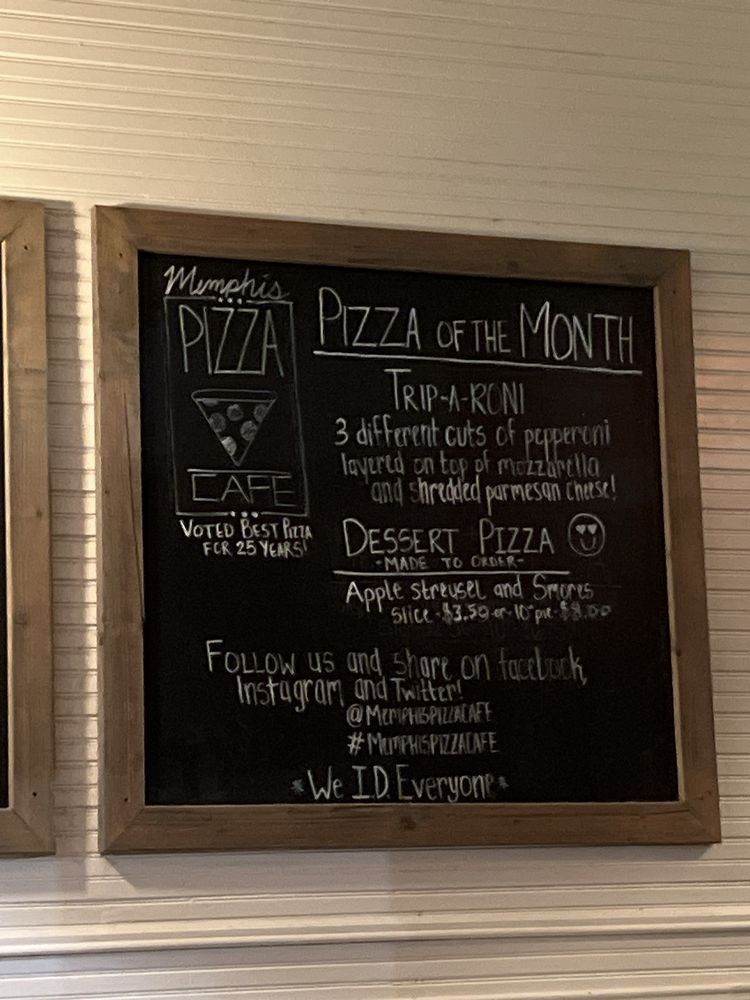 Memphis
PIZZA
CAFE
VOTED BEST PIZZA
FOR 25 YEARS!
PIZZA OF THE MONTH
TRIP-A-RONI
3 different cuts of pepperoni
layered on top of mozzarella
and shredded parmesan cheese!
DESSERT PIZZA
-MADE TO ORDER-
Apple streusel and Smores
slice - $3.50 or 10" pie - $8.00
FOLLOW us and share on facebook,
Instagram and Twitter!
@MEMPHISPIZZACAFE
#MEMPHISPIZZACAFE
*We I.D. Everyone*